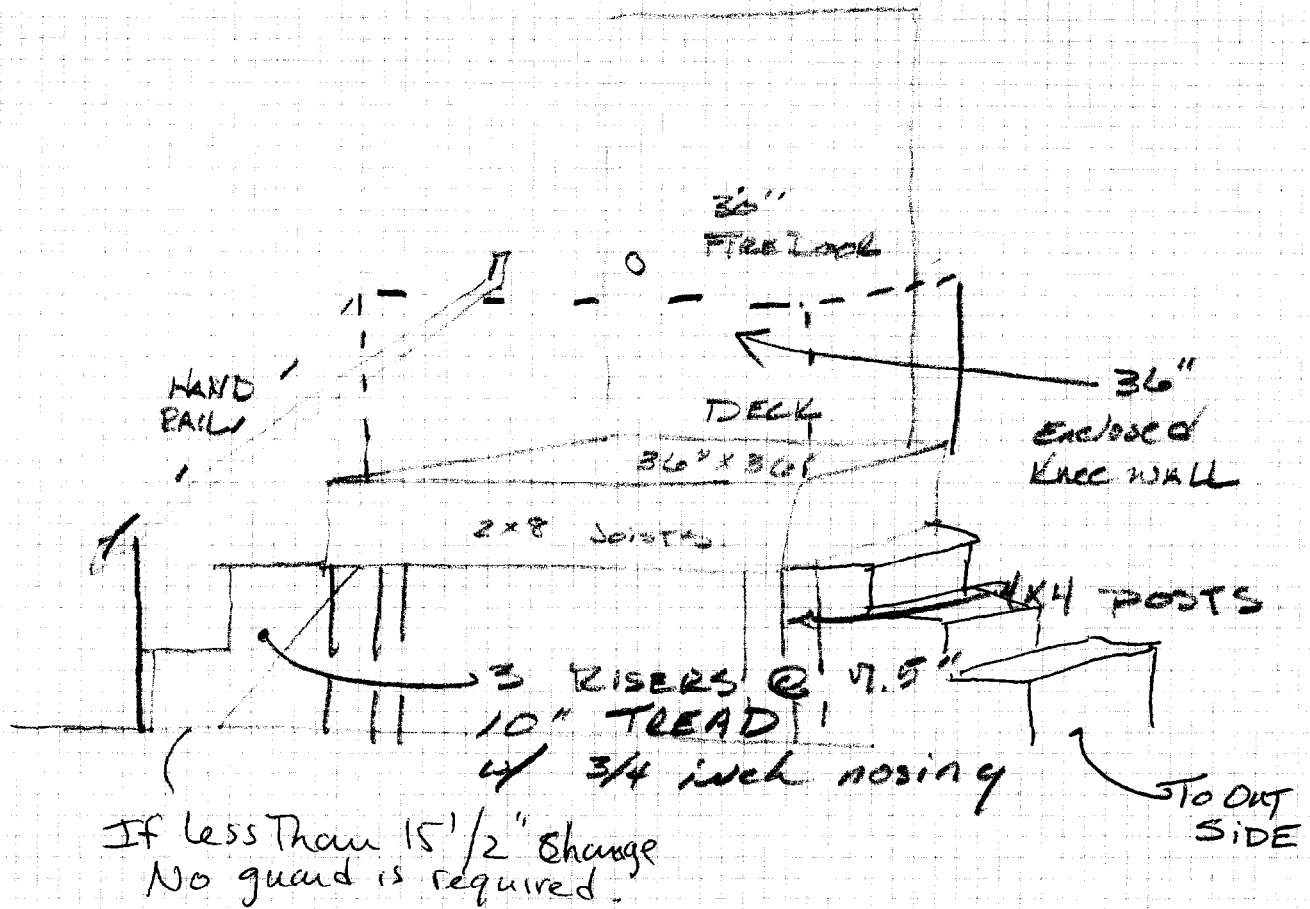 36"
FIRE DOOR
HAND
RAIL
36"
Enclosed
Knee WALL
DECK
36" X 36"
2x8 JOISTS
4X4 POSTS
3 RISERS @ 7.5"
10" TREAD
w/ 3/4 inch nosing
To OUT
SIDE
If less Than 15 1/2" Change
No guard is required.